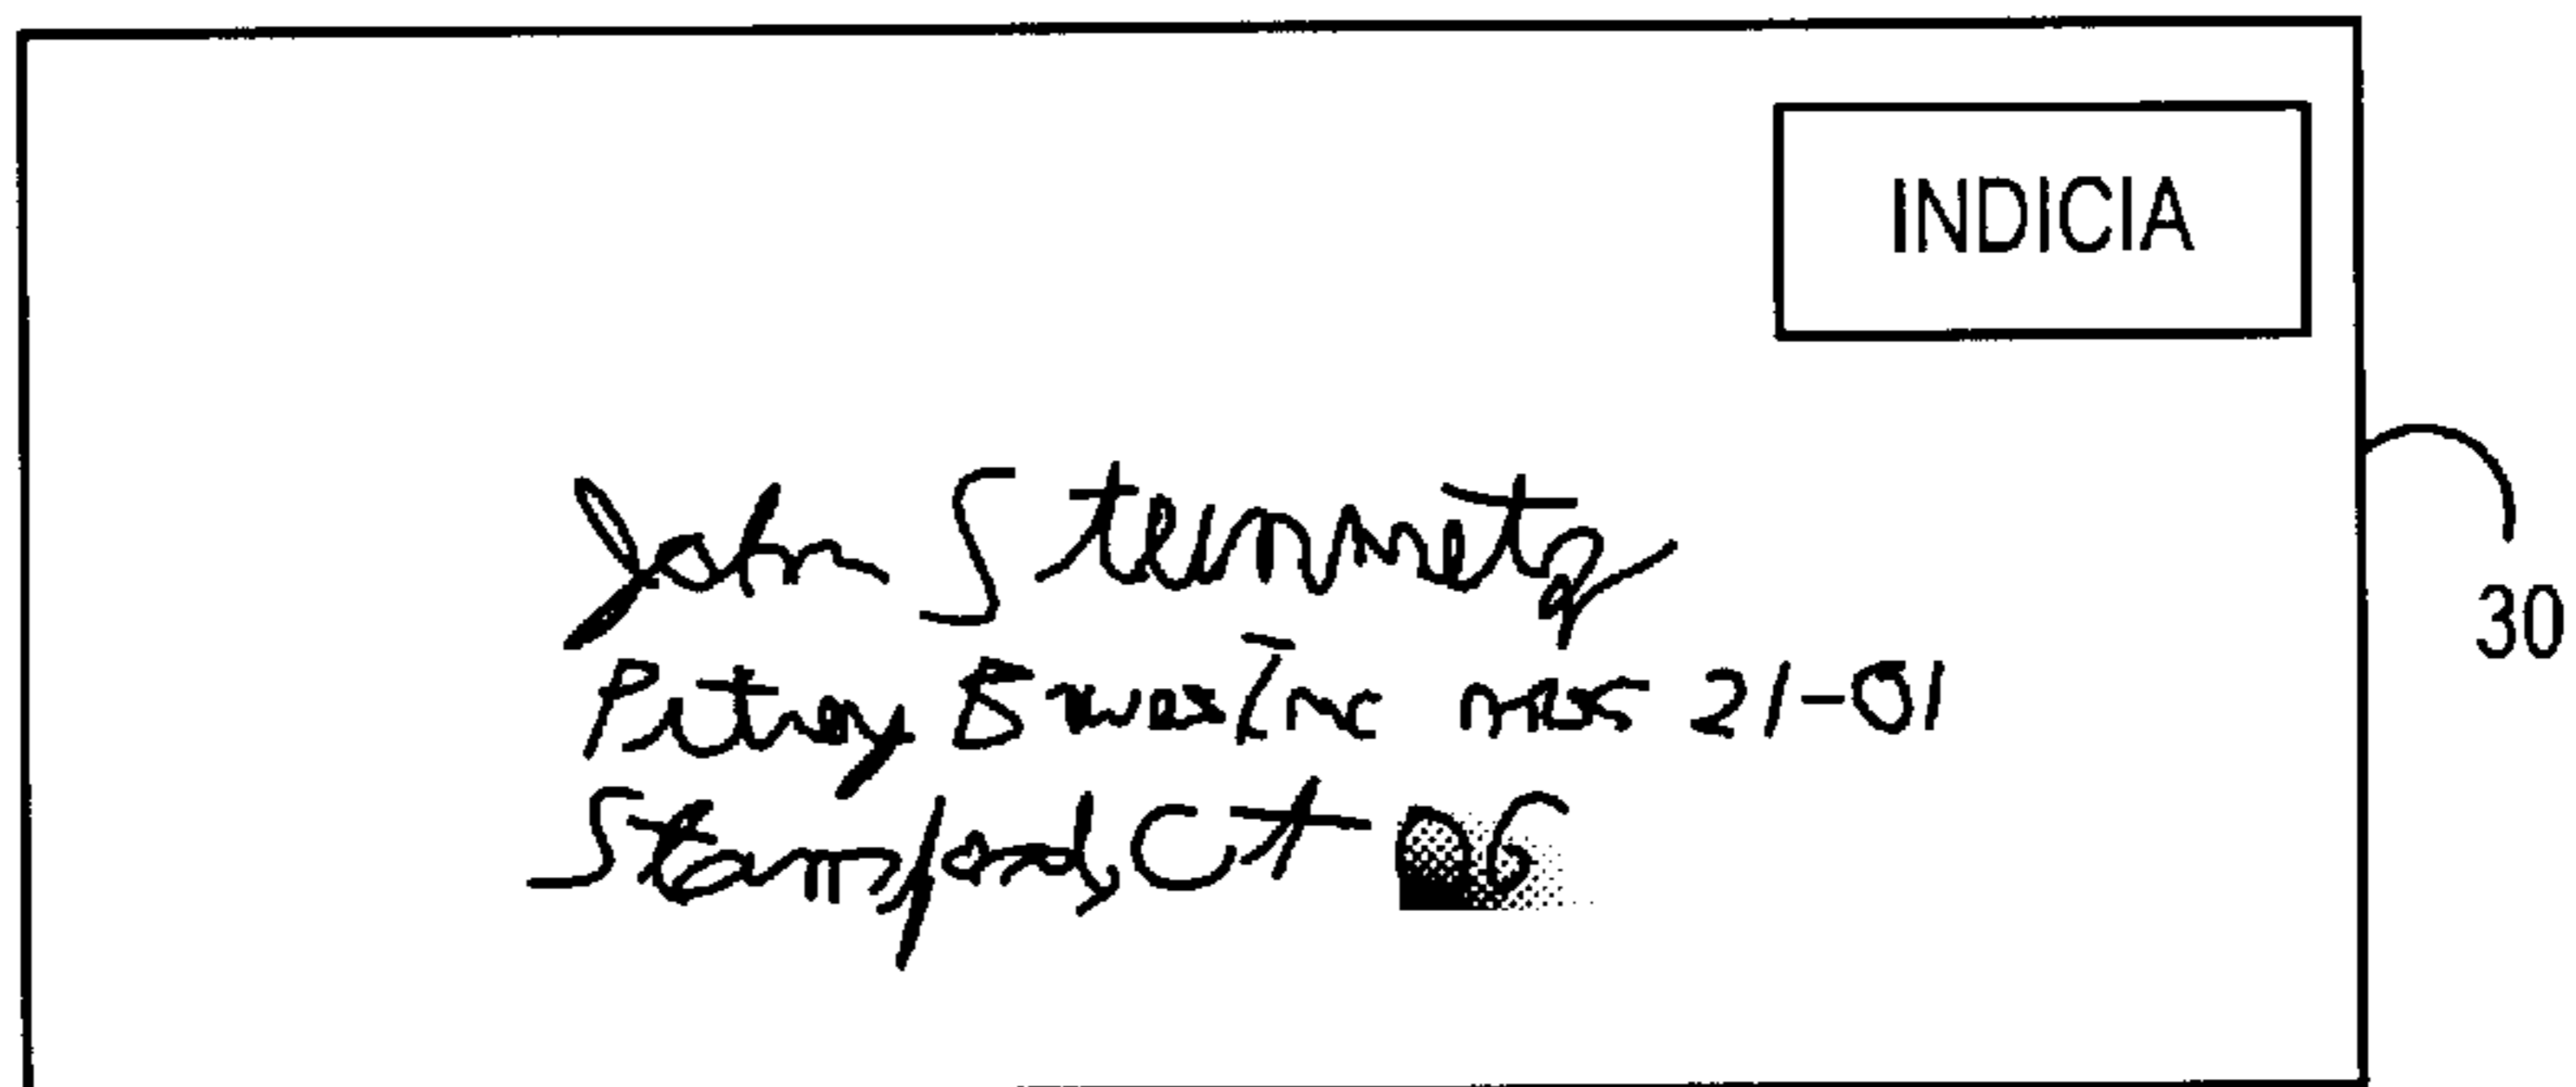 INDICIA
John Steinmetz
30
Pitney Bowes Inc MSC 21-01
Stamford, CT 06